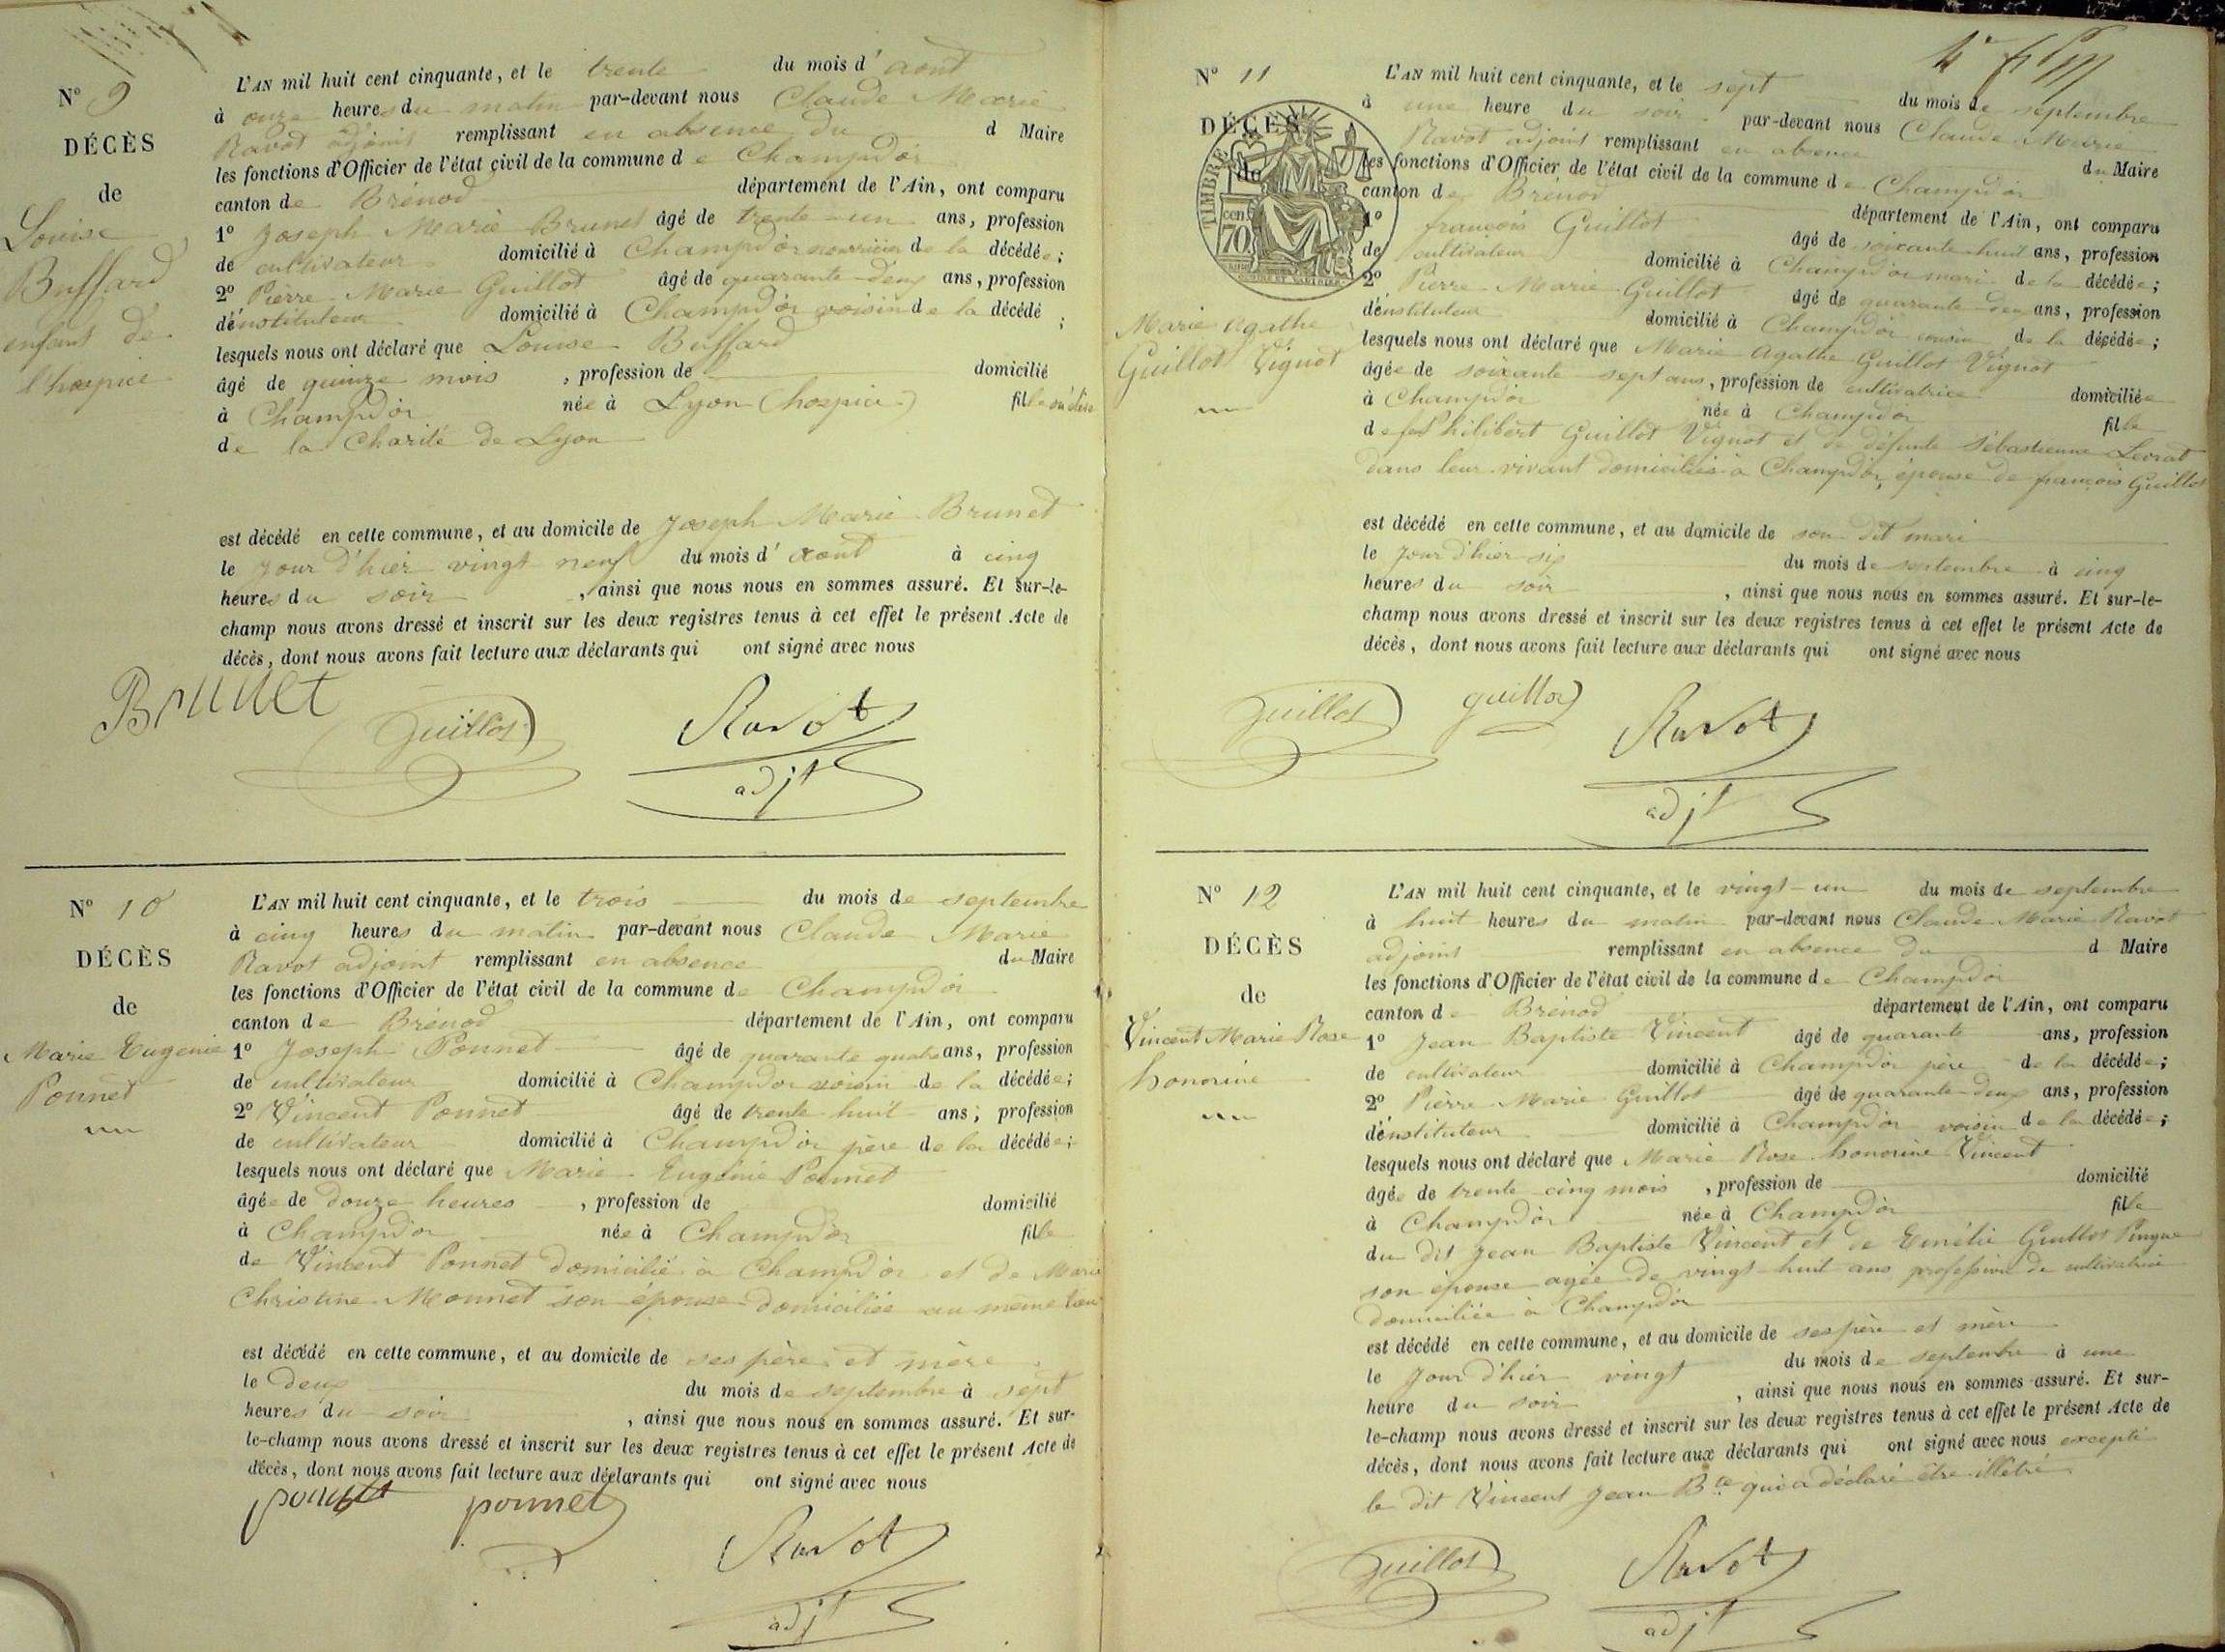 N° 9
DÉCÈS
de
Louise
Buffard
enfant de
l'hospice
L'AN mil huit cent cinquante, et le trente du mois d'août
à onze heures du matin par-devant nous Claude Marie
Ravot adjoint remplissant en absence du d Maire
les fonctions d'Officier de l'état civil de la commune de Champdor
canton de Brénod département de l'Ain, ont comparu
1° Joseph Marie Brunet âgé de trente-un ans, profession
de cultivateur domicilié à Champdor nourricier de la décédée;
2° Pierre Marie Guillot âgé de quarante-deux ans, profession
d'instituteur domicilié à Champdor voisin de la décédé ;
lesquels nous ont déclaré que Louise Buffard
âgé de quinze mois , profession de domicilié
à Champdor née à Lyon (hospice) fille
de la Charité de Lyon
est décédé en cette commune, et au domicile de Joseph Marie Brunet
le jour d'hier vingt neuf du mois d'août à cinq
heures du soir , ainsi que nous nous en sommes assuré. Et sur-le-
champ nous avons dressé et inscrit sur les deux registres tenus à cet effet le présent Acte de
décès, dont nous avons fait lecture aux déclarants qui ont signé avec nous
Brunet Guillot Ravot
adjt
N° 10
DÉCÈS
de
Marie Eugenie
Ponnet
L'AN mil huit cent cinquante, et le trois du mois de septembre
à cinq heures du matin par-devant nous Claude Marie
Ravot adjoint remplissant en absence du Maire
les fonctions d'Officier de l'état civil de la commune de Champdor
canton de Brénod département de l'Ain, ont comparu
1° Joseph Ponnet âgé de quarante quatre ans, profession
de cultivateur domicilié à Champdor voisin de la décédée;
2° Vincent Ponnet âgé de trente huit ans; profession
de cultivateur domicilié à Champdor père de la décédée;
lesquels nous ont déclaré que Marie Eugénie Ponnet
âgée de douze heures , profession de domicilié
à Champdor née à Champdor fille
de Vincent Ponnet domicilié à Champdor et de Marie
Christine Monnet son épouse domiciliée au même lieu
est décédé en cette commune, et au domicile de ses père et mère
le deux du mois de septembre à sept
heures du soir , ainsi que nous nous en sommes assuré. Et sur-
le-champ nous avons dressé et inscrit sur les deux registres tenus à cet effet le présent Acte de
décès, dont nous avons fait lecture aux déclarants qui ont signé avec nous
ponnet ponnet Ravot
adjt
N° 11
DÉCÈS
de
TIMBRE
70 cen.
Marie Agathe
Guillot Vignot
L'AN mil huit cent cinquante, et le sept du mois de septembre
à une heure du soir par-devant nous Claude Marie
Ravot adjoint remplissant en absence du Maire
les fonctions d'Officier de l'état civil de la commune de Champdor
canton de Brénod département de l'Ain, ont comparu
1° françois Guillot âgé de soixante-huit ans, profession
de cultivateur domicilié à Champdor mari de la décédée;
2° Pierre Marie Guillot âgé de quarante-deux ans, profession
d'instituteur domicilié à Champdor cousin de la décédée;
lesquels nous ont déclaré que Marie Agathe Guillot Vignot
âgée de soixante sept ans, profession de cultivatrice domiciliée
à Champdor née à Champdor fille
de feu Philibert Guillot Vignot et de défunte Sébastienne Levrat
dans leur vivant domiciliés à Champdor, épouse de françois Guillot
est décédé en cette commune, et au domicile de son dit mari
le jour d'hier six du mois de septembre à cinq
heures du soir , ainsi que nous nous en sommes assuré. Et sur-le-
champ nous avons dressé et inscrit sur les deux registres tenus à cet effet le présent Acte de
décès, dont nous avons fait lecture aux déclarants qui ont signé avec nous
Guillot guillot Ravot
adjt
N° 12
DÉCÈS
de
Vincent Marie Rose
honorine
L'AN mil huit cent cinquante, et le vingt-un du mois de septembre
à huit heures du matin par-devant nous Claude Marie Ravot
adjoint remplissant en absence du d Maire
les fonctions d'Officier de l'état civil de la commune de Champdor
canton de Brénod département de l'Ain, ont comparu
1° Jean Baptiste Vincent âgé de quarante ans, profession
de cultivateur domicilié à Champdor père de la décédée;
2° Pierre Marie Guillot âgé de quarante-deux ans, profession
d'instituteur domicilié à Champdor voisin de la décédée;
lesquels nous ont déclaré que Marie Rose honorine Vincent
âgée de trente cinq mois , profession de domicilié
à Champdor née à Champdor fille
du dit Jean Baptiste Vincent et de Emélie Guillot Pingue
son épouse agée de vingt-huit ans profession de cultivatrice
domiciliée à Champdor
est décédé en cette commune, et au domicile de ses père et mère
le jour d'hier vingt du mois de septembre à une
heure du soir , ainsi que nous nous en sommes assuré. Et sur-
le-champ nous avons dressé et inscrit sur les deux registres tenus à cet effet le présent Acte de
décès, dont nous avons fait lecture aux déclarants qui ont signé avec nous excepté
le dit Vincent Jean Bte qui a déclaré être illétré
Guillot Ravot
adjt